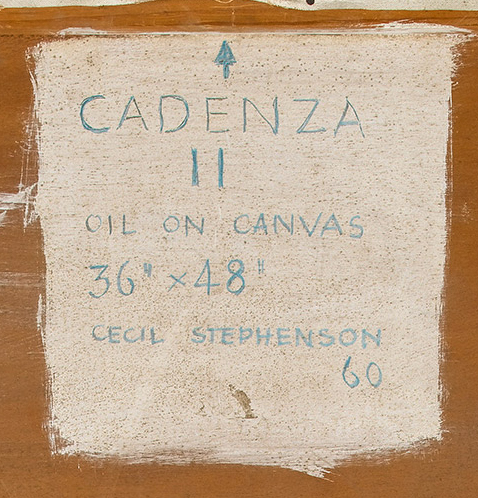 CADENZA
II
OIL ON CANVAS
36" × 48"
CECIL STEPHENSON
60